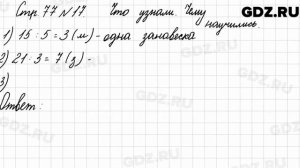 Стр. 77 № 17. Что узнали. Чему
научились
1) 15 : 5 = 3 (м) - одна занавеска
2) 21 : 3 = 7 (з) -
3)
Ответ: